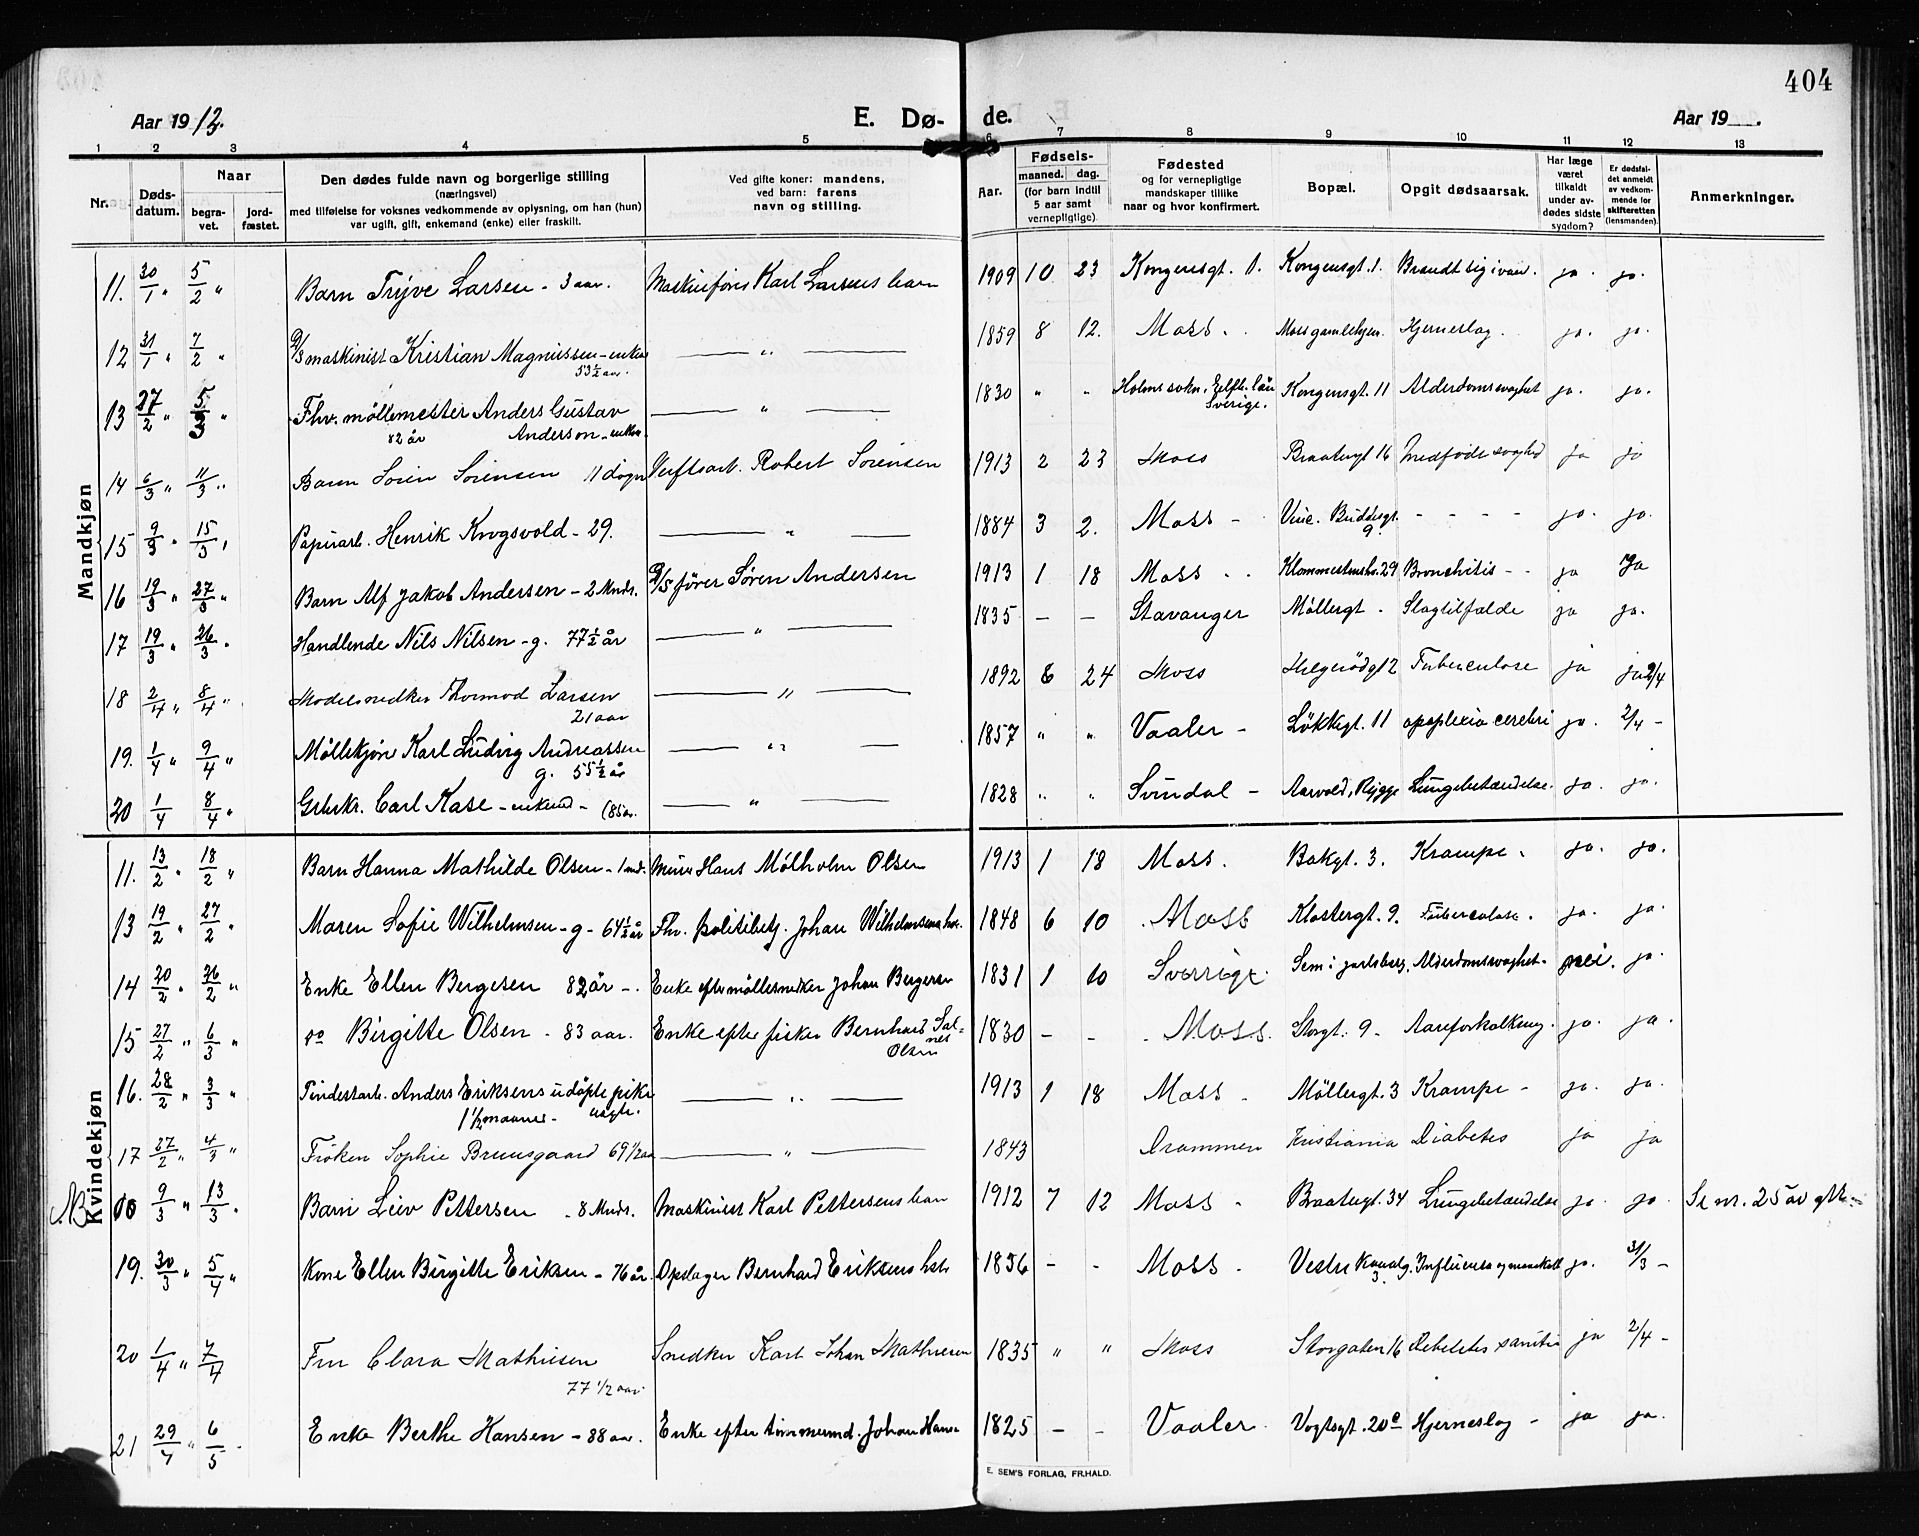 404
Aar 1913.
E. Dø-
de.
Aar 19 .
1 2 3 4 5 6 7 8 9 10 11 12 13
Nr.
Døds-
datum.
Naar
begra-
vet.
jord-
fæstet.
Den dødes fulde navn og borgerlige stilling
(næringsvei)
med tilføielse for voksnes vedkommende av oplysning, om han (hun)
var ugift, gift, enkemand (enke) eller fraskilt.
Ved gifte koner: mandens,
ved barn: farens
navn og stilling.
Aar.
Fødsels-
maaned. dag.
(for barn indtil
5 aar samt
vernepligtige)
Fødested
og for vernepligtige
mandskaper tillike
naar og hvor konfirmert.
Bopæl.
Opgit dødsaarsak.
Har læge
været
tilkaldt
under av-
dødes sidste
sygdom?
Er dødsfal-
det anmeldt
av vedkom-
mende for
skifteretten
(lensmanden)
Anmerkninger.
Mandkjøn
11. 30/1 " 5/2 " Barn Trÿve Larsen - 3 aar. Maskinfører Karl Larsens barn 1909 10 23 Kongensgt. 1. Kongensgt. 1. Brændt sig i vand. ja. ja.
12 31/1 " 7/2 " D/S maskinist Kristian Magnussen - enkem. 53½ aar. — " — 1859 8 12. Moss. Moss gamlehjem. Hjerneslag. ja. ja.
13 27/2 " 5/3 " Fhv. møllemester Anders Gustav
82 år Anderson - enkem. — " — 1830 " " Holms sokn, Elfsb. län
Sverige. Kongensgt. 11 Alderdomssvaghet ja. ja.
14 6/3 " 11/3 " Barn Soren Sörensen 11 døgn Verftsarb. Robert Sörensen 1913 2 23 Moss Braatengt 16 Medfödt svaghed ja ja
15 9/3 " 15/3 " Papirarb. Henrik Krogsvold - 29. — " — 1884 3 2. Moss - Vinc. Buddesgt. 9. - - - - ja. ja.
16 19/3 " 27/3 " Barn Alf Jakob Andersen - 2 Mndr. D/S fører Søren Andersen 1913 1 18 Moss . . 29 Bronchitis - - ja Ja
17 19/3 " 26/3 " Handlende Nils Nilsen - g. 77½ år — " — 1835 — — Stavanger Møllergt - Slagtilfælde ja ja.
18 2/4 " 8/4 " Modelsnedker Thormod Larsen
21 aar — " — 1892 6 24 Moss Helgerödgt 2 Tuberculose ja ja 2/4
19. 1/4 " 9/4 " Møllekjør Karl Ludvig Andreassen
g. 55½ år — " — 1857 " " Vaaler - Løkkegt. 11 apoplexia cerebri ja. 2/4 -
20 1/4 8/4 " Grbrkr. Carl Kase - enkemd - (85 år. — " — 1828 " " Svindal - Aarvold, Rygge Lungebetændelse. ja. ja.
Kvindekjøn
11. 13/2 " 18/2 " Barn Hanna Mathilde Olsen - 1 mnd. Murer Hans Mølholm Olsen 1913 1 18 Moss. Bakgt. 3. Krampe. ja. ja.
13 19/2 " 27/2 " Maren Sofie Wilhelmsen - g - 64½ år Fhv. politibetj. Johan Wilhelmsens hus. 1848 6 10 Moss Klostergt. 9. Tuberculose. ja. ja.
14 20/2 " 26/2 " Enke Ellen Bergesen 82 år - . Enke efter møllesnedker Johan Bergersen 1831 1 10 Sverrige. Sem i Jarlsberg. Alderdomssvaghet. nei. ja.
15 27/2 " 6/3 " do Birgitte Olsen - 83 aar. Enke efter fisker Bernhard Sal-
nes
Olsen 1830 - - Moss. Storgt. 9 - Aareforkalkning. ja. ja.
16. 28/2 " 3/3 " Tindestarb. Anders Eriksens udöpte pike
1½ maaned - — " — 1913 1 18 Moss - Möllergt. 3 Krampe - ja. ja.
17 27/2 " 4/3 " Fröken Sophie Bruusgaard 69 1/2 aar — " — 1843 Drammen Kristiania Diabetes ja ja
NB 9/3 " 13/3 " Barn Leiv Pettersen - 8 Mndr. Maskinist Karl Pettersens barn 1912 7 12 Moss - Braatengt. 34 Lungebetændelse ja. ja. Se nr. 25 av
19. 30/3 " 5/4 " Kone Ellen Birgitte Eriksen - 76 år. Opdager Bernhard Eriksens hstr. 1836 - - Moss. Vestre Kanalg. 3. Influensa og ja. 31/3 -
20 1/4 " 7/4 Fru Clara Mathiesen
77 1/2 aar. Snedker Karl Johan Mathiesen 1835 " " Moss Storgaten 16 ja 2/4 -
21 29/4 " 6/5 - Enke Berthe Hansen - 88 aar. Enke efter tømmermd. Johan Hansen 1825 - - Vaaler. Vogtsgt. 20e Hjerneslag - ja ja.
E. SEM'S FORLAG, FR.HALD.